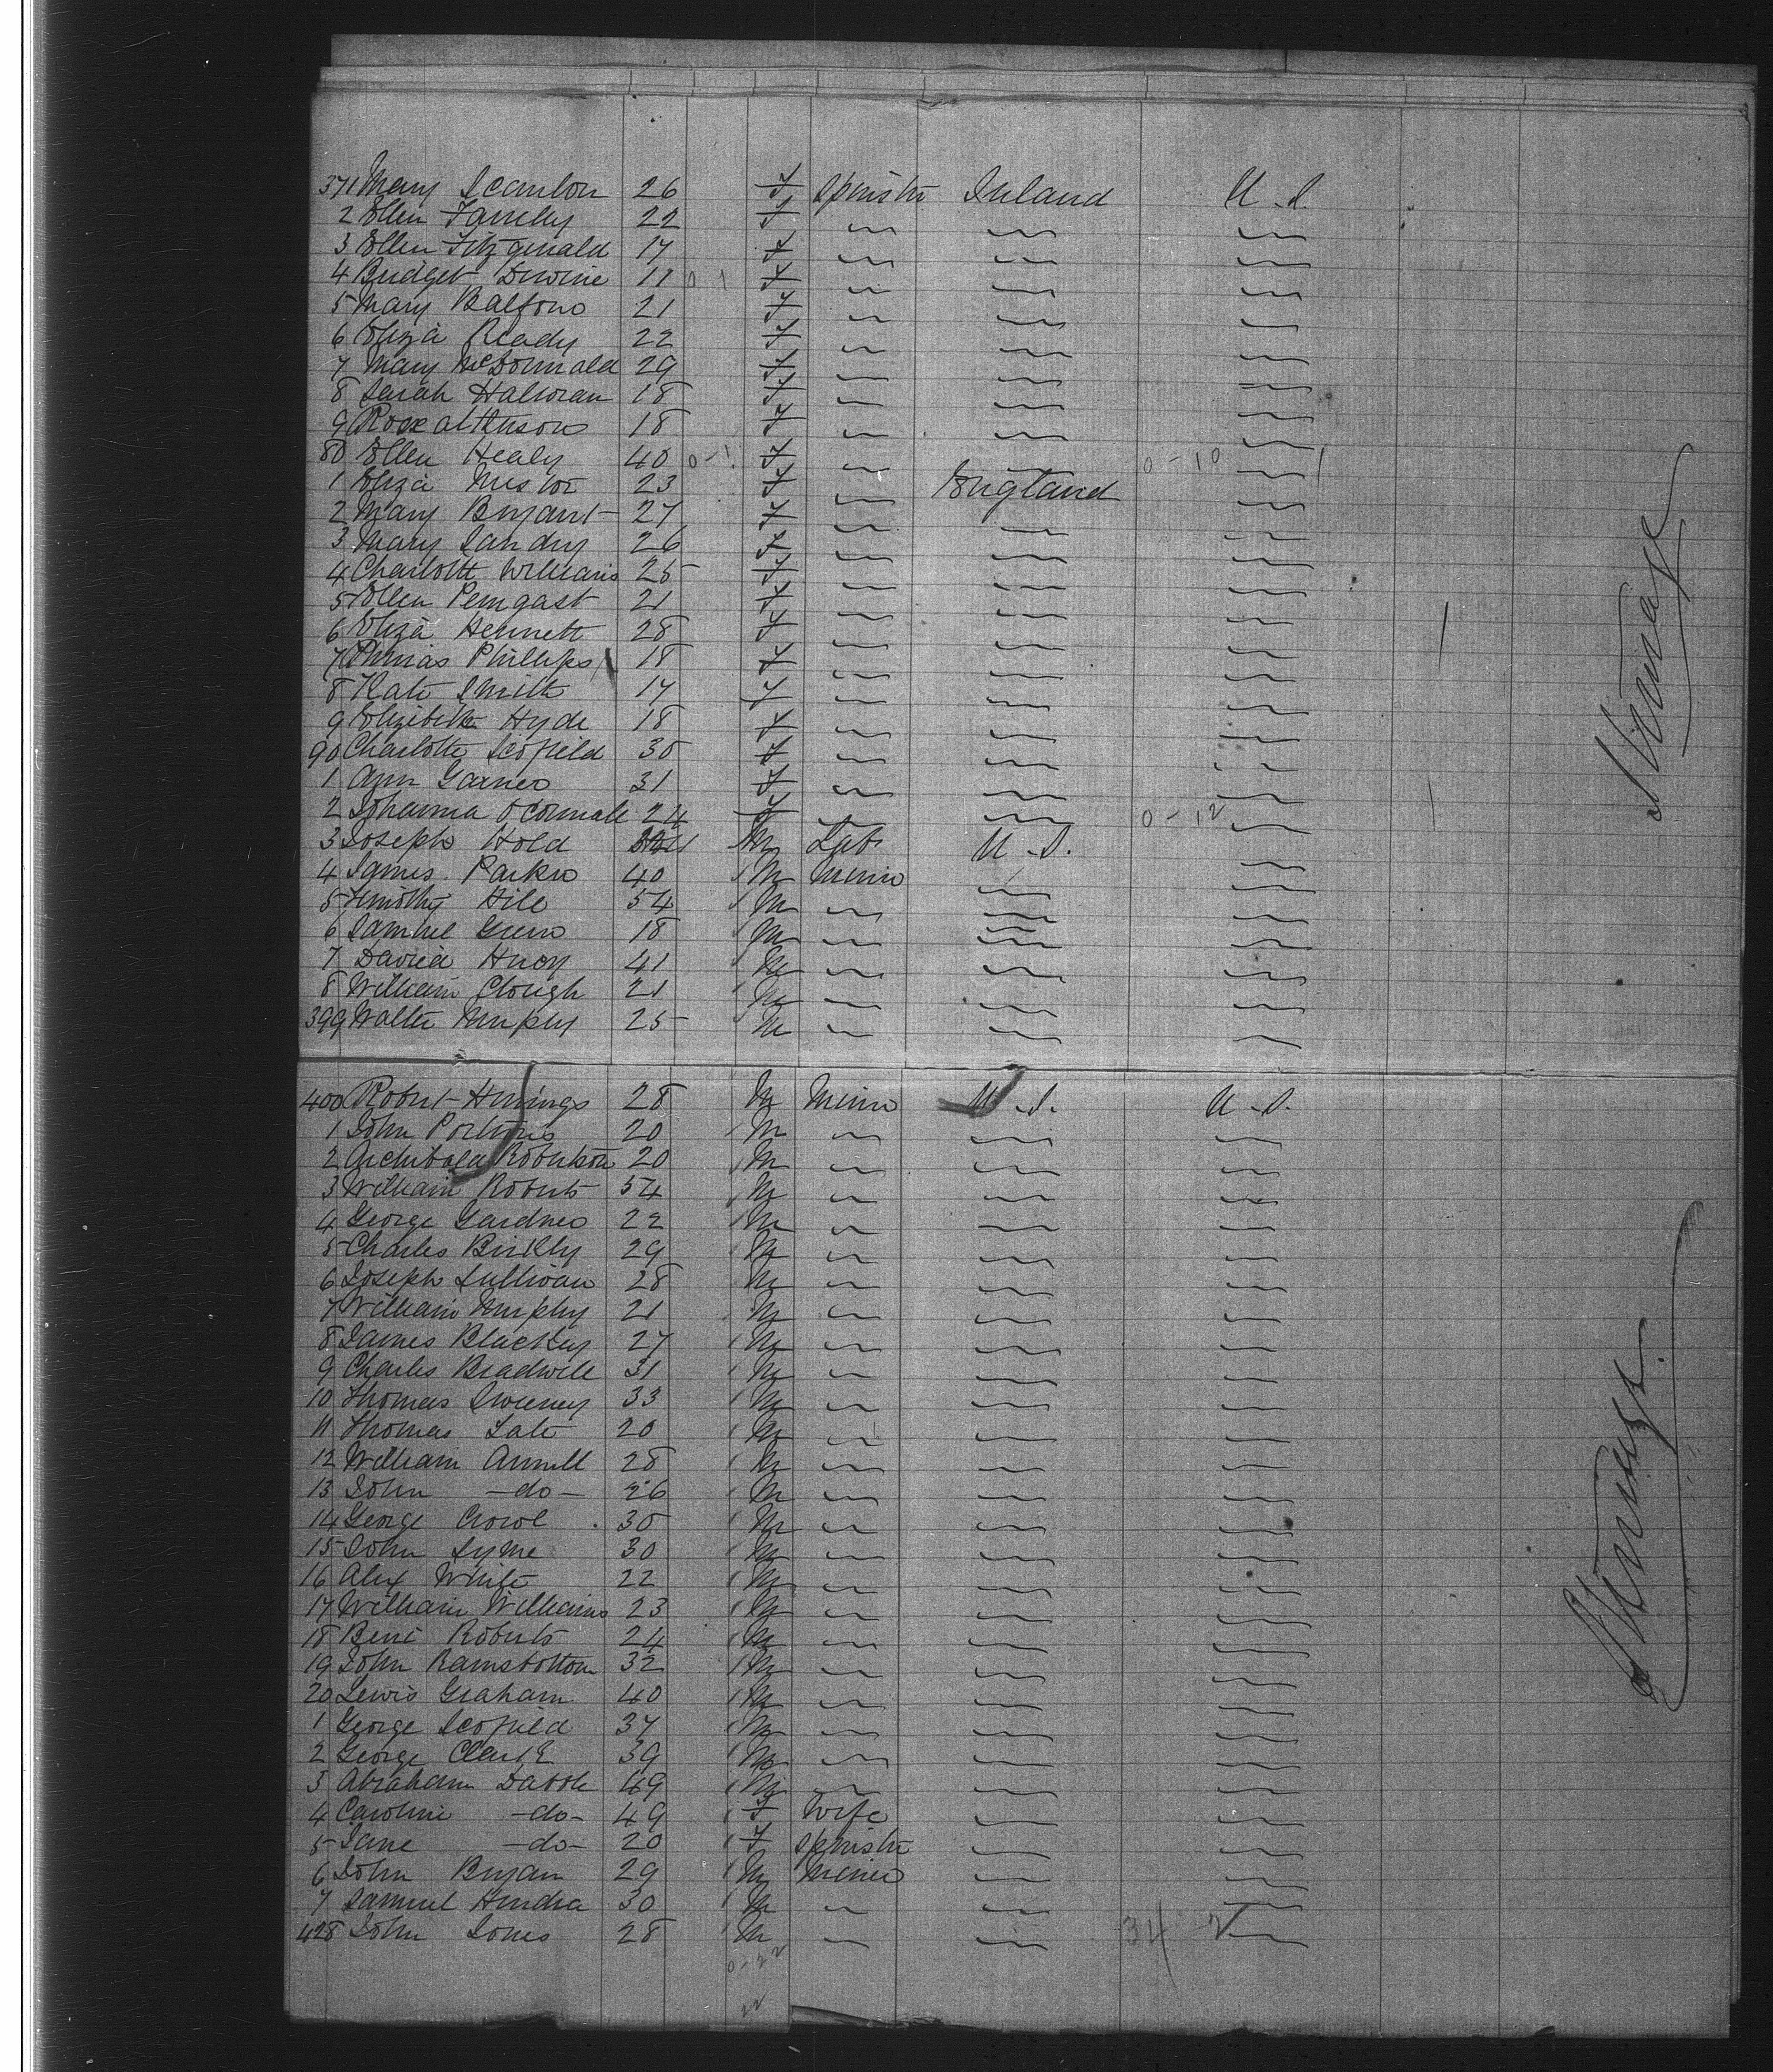 371 Mary Scanlon 26 F Spinster Ireland U.S.
2 Ellen Farrelly 22 F
3 Ellen Fitzgerald 17 F
4 Bridget Devine 11 0 1 F
5 Mary Balfour 21 F
6 Eliza Ready 22 F
7 Mary McDonnald 29 F
8 Sarah Halloran 18 F
9 Rose 18 F
80 Ellen Healy 40 0-1 F 0-10
1 Eliza 23 F England
2 Mary Bryant 27 F
3 Mary Landry 26 F
4 Charlotte Williams 25 F
5 Ellen 21 F
6 Eliza Hennett 28 F
7 Phillips 18 F
8 Kate Smith 17 F
9 Elizabeth Hyde 18 F
90 Charlotte Scofield 30 F
1 Ann Garner 31 F
2 Johanna 24 F 0-12
3 Joseph Hold M Lab U.S.
4 James Parker 40 M Miner
5 Timothy Hill 54 M
6 Samuel Green 18 M
7 David 41 M
8 William Clough 21 M
399 Walter Murphy 25 M
400 Robert Hennings 28 M Miner U.S. U.S.
1 John 20 M
2 Archibald Robertson 20 M
3 William Roberts 54 M
4 George Gardner 22 M
5 Charles 29 M
6 Joseph Sullivan 28 M
7 William Murphy 21 M
8 James Blackley 27 M
9 Charles Bradwell 31 M
10 Thomas Sweeney 33 M
11 Thomas 20 M
12 William Annell 28 M
13 John -do- 26 M
14 George 30 M
15 John Syme 30 M
16 Alex White 22 M
17 William Williams 23 M
18 Beni Roberts 24 M
19 John Ramsbottom 32 M
20 Lewis Graham 40 M
1 George Scofield 37 M
2 George Clark 39 M
3 Abraham 49 M
4 Caroline -do- 49 F Wife
5 Jane -do- 20 F Spinster
6 John Bryan 29 M Miner
7 Samuel Hendra 30 M
428 John Jones 28 M 34
0-22
22
Steerage
Steerage